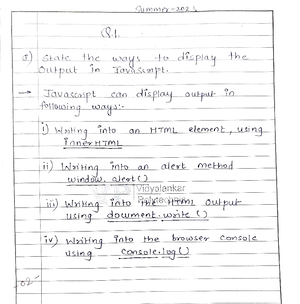 Summer-202
Q.1.
State the ways to display the
Output in Javascript.
→ Javascript can display output in
following ways:-
i) Writing into an HTML element, using
innerHTML
ii) Writing into an alert method
window.alert()
Vidyalankar
Polytechnic
iii) Writing into the HTML output
using document.write()
iv) Writing into the browser console
using console.log()
02